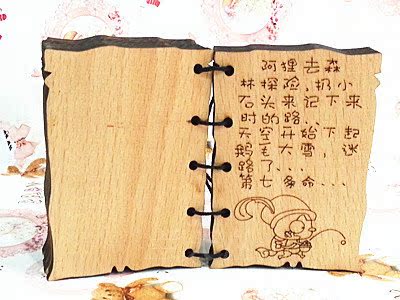 阿狸去森
林探险，扔小
石头来记下来
时的路..
天空开始下起
鹅毛大雪，迷
路了....
第七条命...